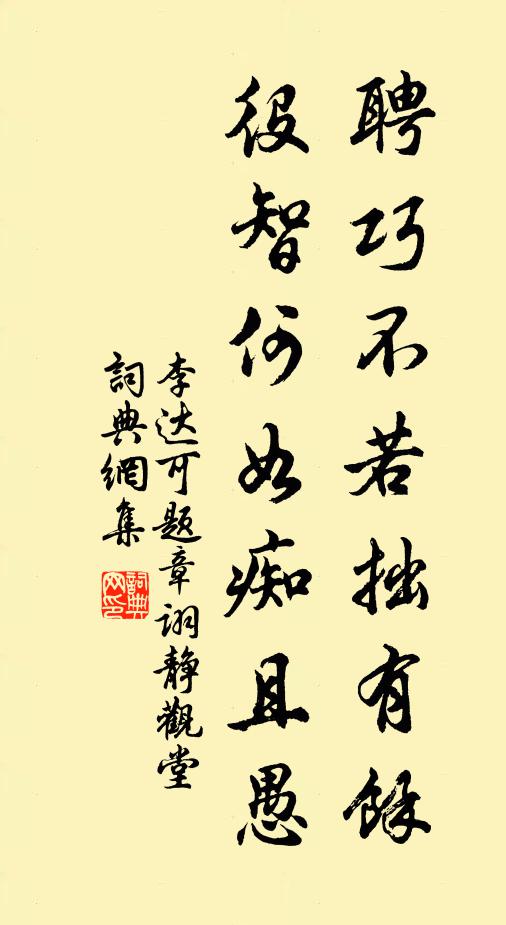 聘巧不若拙有餘
役智何如痴且愚
李达可题章诩静觀堂
詞典網集
詞典网印